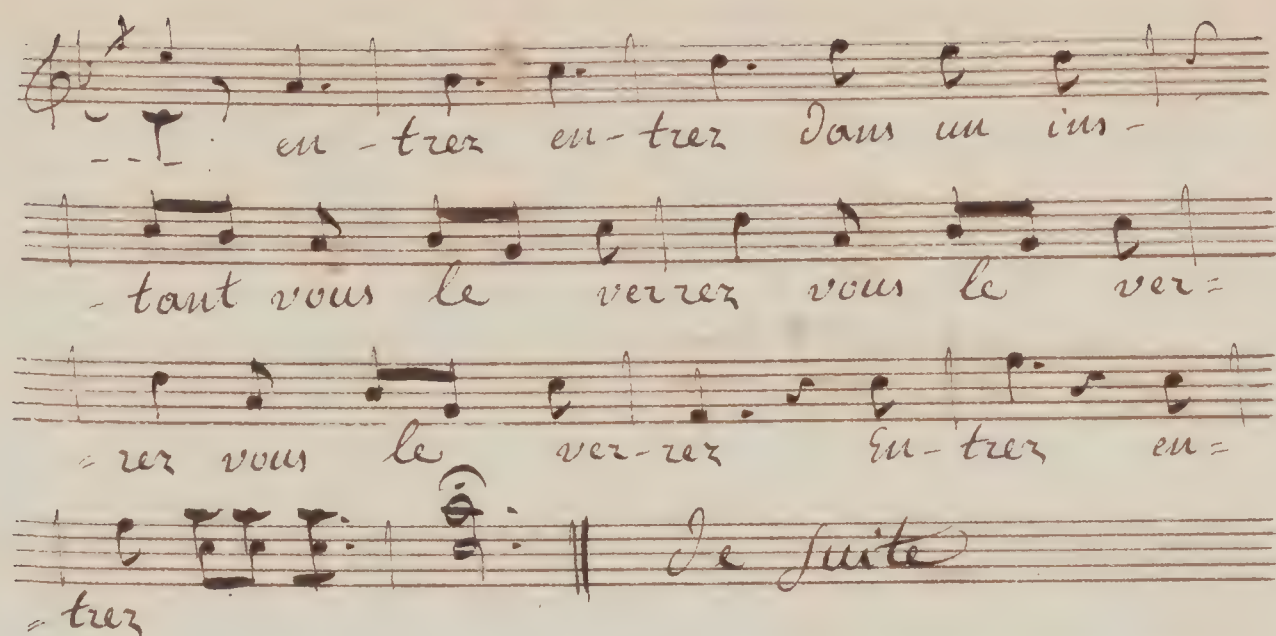 en - trez en - trez dans un ins -
- tant vous le verrez vous le ver=
= rez vous le ver - rez En - trez en =
De suite
= trez